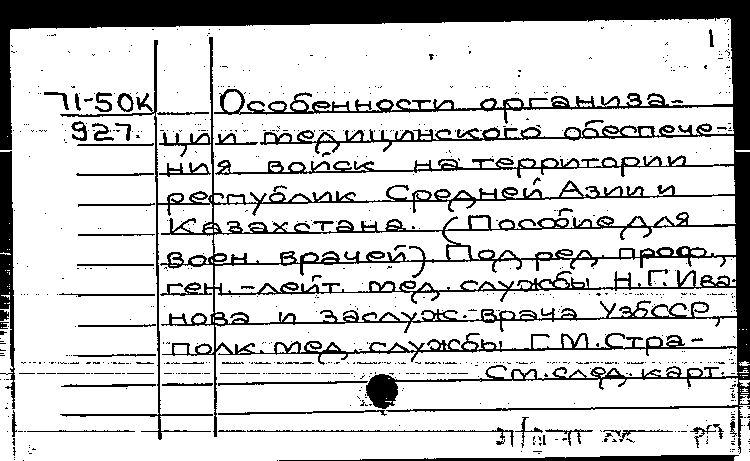 1
71-50К Особенности организа-
927. ции медицинского обеспече-
ния войск на территории
республик Средней Азии и
Казахстана. (Пособие для
воен. врачей). Под ред. проф.,
ген.-лейт. мед. службы Н.Г.Ива-
нова и заслуж. врача УзбССР,
полк. мед. службы Г.М.Стра-
См. след. карт.
31/III-71